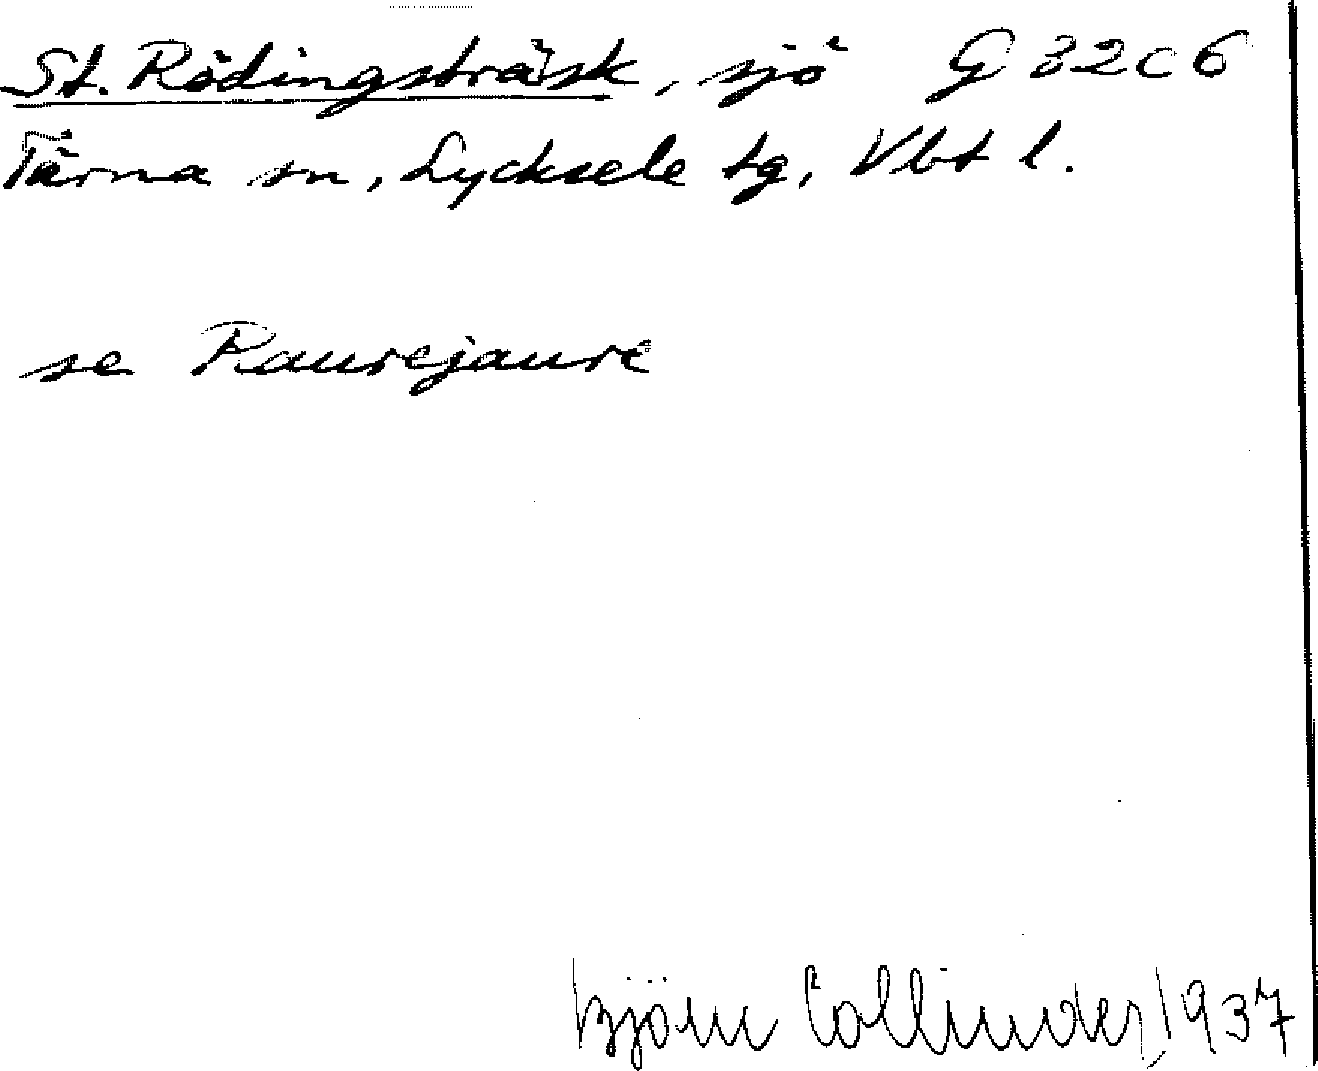 St. Rödingsträsk, sjö G 32 C 6
Tärna sn, Lycksele tg, Vbt l.
se Raurejaure
Björn Collinder, 1937